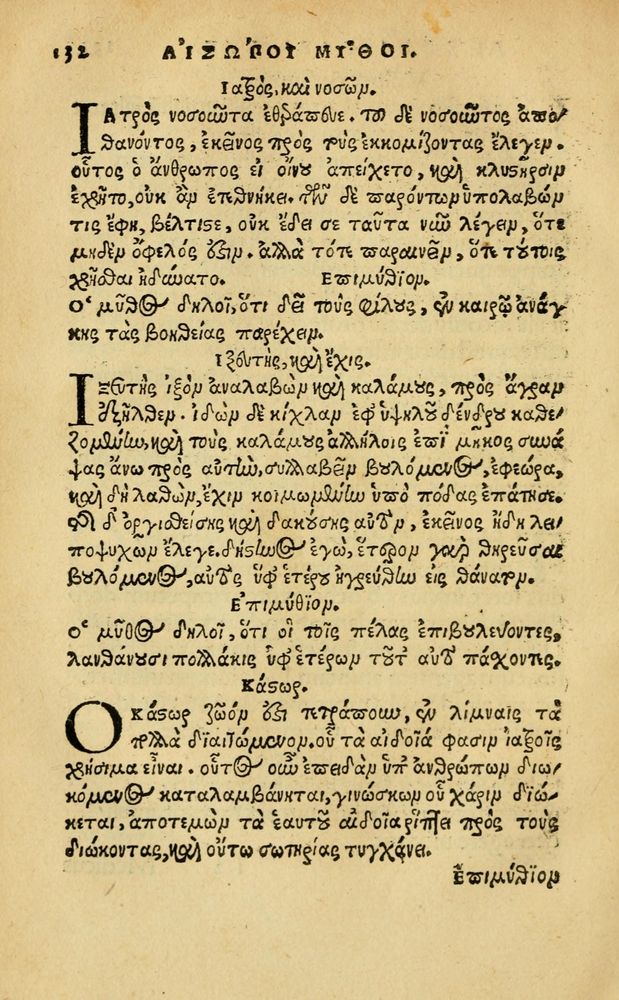 132 ΑἸΣΩΠΟΥ ΜΥ͂ΘΟΙ.
Ἰατρὸς, καὶ νοσῶν.
ΙΑΤρὸς νοσοῦντα ἐθεράπευε. τοῦ δὲ νοσοῦντος ἀπο-
θανόντος, ἐκεῖνος πρὸς τοὺς ἐκκομίζοντας ἔλεγεν.
οὗτος ὁ ἄνθρωπος εἰ οἴνου ἀπείχετο, καὶ κλυστῆρσιν
ἐχρῆτο, οὐκ ἂν ἐτεθνήκει. τῶν δὲ παρόντων ὑπολαβών
τις ἔφη, βέλτιστε, οὐκ ἔδει σε ταῦτα νῦν λέγειν, ὅτε
μηδὲν ὄφελός ἐστιν. ἀλλὰ τότε παραινεῖν, ὅτε τούτοις
χρῆσθαι ἠδύνατο. Ἐπιμύθϊον.
Ὁ μῦθος δηλοῖ, ὅτι δεῖ τοὺς φίλους, ἐν καιρῷ ἀνάγ-
κης τὰς βοηθείας παρέχειν.
Ἰξευτὴς, καὶ ἔχις.
ΙΞΕυτὴς ἰξὸν ἀναλαβὼν καὶ καλάμους, πρὸς ἄγραν
ἐξῆλθεν. ἰδὼν δὲ κίχλαν ἐφ' ὑψηλοῦ δένδρου καθε-
ζομένην, καὶ τοὺς καλάμους ἀλλήλοις ἐπὶ μῆκος συνά-
ψας ἄνω πρὸς αὐτὴν, συλλαβεῖν βουλόμενος, ἐφεώρα,
καὶ δὴ λαθὼν, ἔχιν κοιμωμένην ὑπὸ πόδας ἐπάτησε.
τῆς δ' ὀργισθείσης καὶ δακούσης αὐτὸν, ἐκεῖνος ἤδη λει-
ποψυχῶν ἔλεγε. δύστηνος ἐγὼ, ἕτερον γὰρ θηρεῦσαι
βουλόμενος, αὐτὸς ὑφ' ἑτέρου ἠγρεύθην εἰς θάνατον.
Ἐπιμύθϊον.
Ὁ μῦθος δηλοῖ, ὅτι οἱ τοῖς πέλας ἐπιβουλεύοντες,
λανθάνουσι πολλάκις ὑφ' ἑτέρων τοῦτ' αὐτὸ πάσχοντες.
Κάστωρ.
Ὁ Κάστωρ ζῶόν ἐστι τετράπουν, ἐν λίμναις τὰ
πολλὰ διαιτώμενον. οὗ τὰ αἰδοῖά φασιν ἰατροῖς
χρήσιμα εἶναι. οὗτος οὖν ἐπειδὰν ὑπ' ἀνθρώπων διω-
κόμενος καταλαμβάνηται, γινώσκων οὗ χάριν διώ-
κεται, ἀποτεμὼν τὰ ἑαυτοῦ αἰδοῖα ῥίπτει πρὸς τοὺς
διώκοντας, καὶ οὕτω σωτηρίας τυγχάνει.
Ἐπιμύθϊον